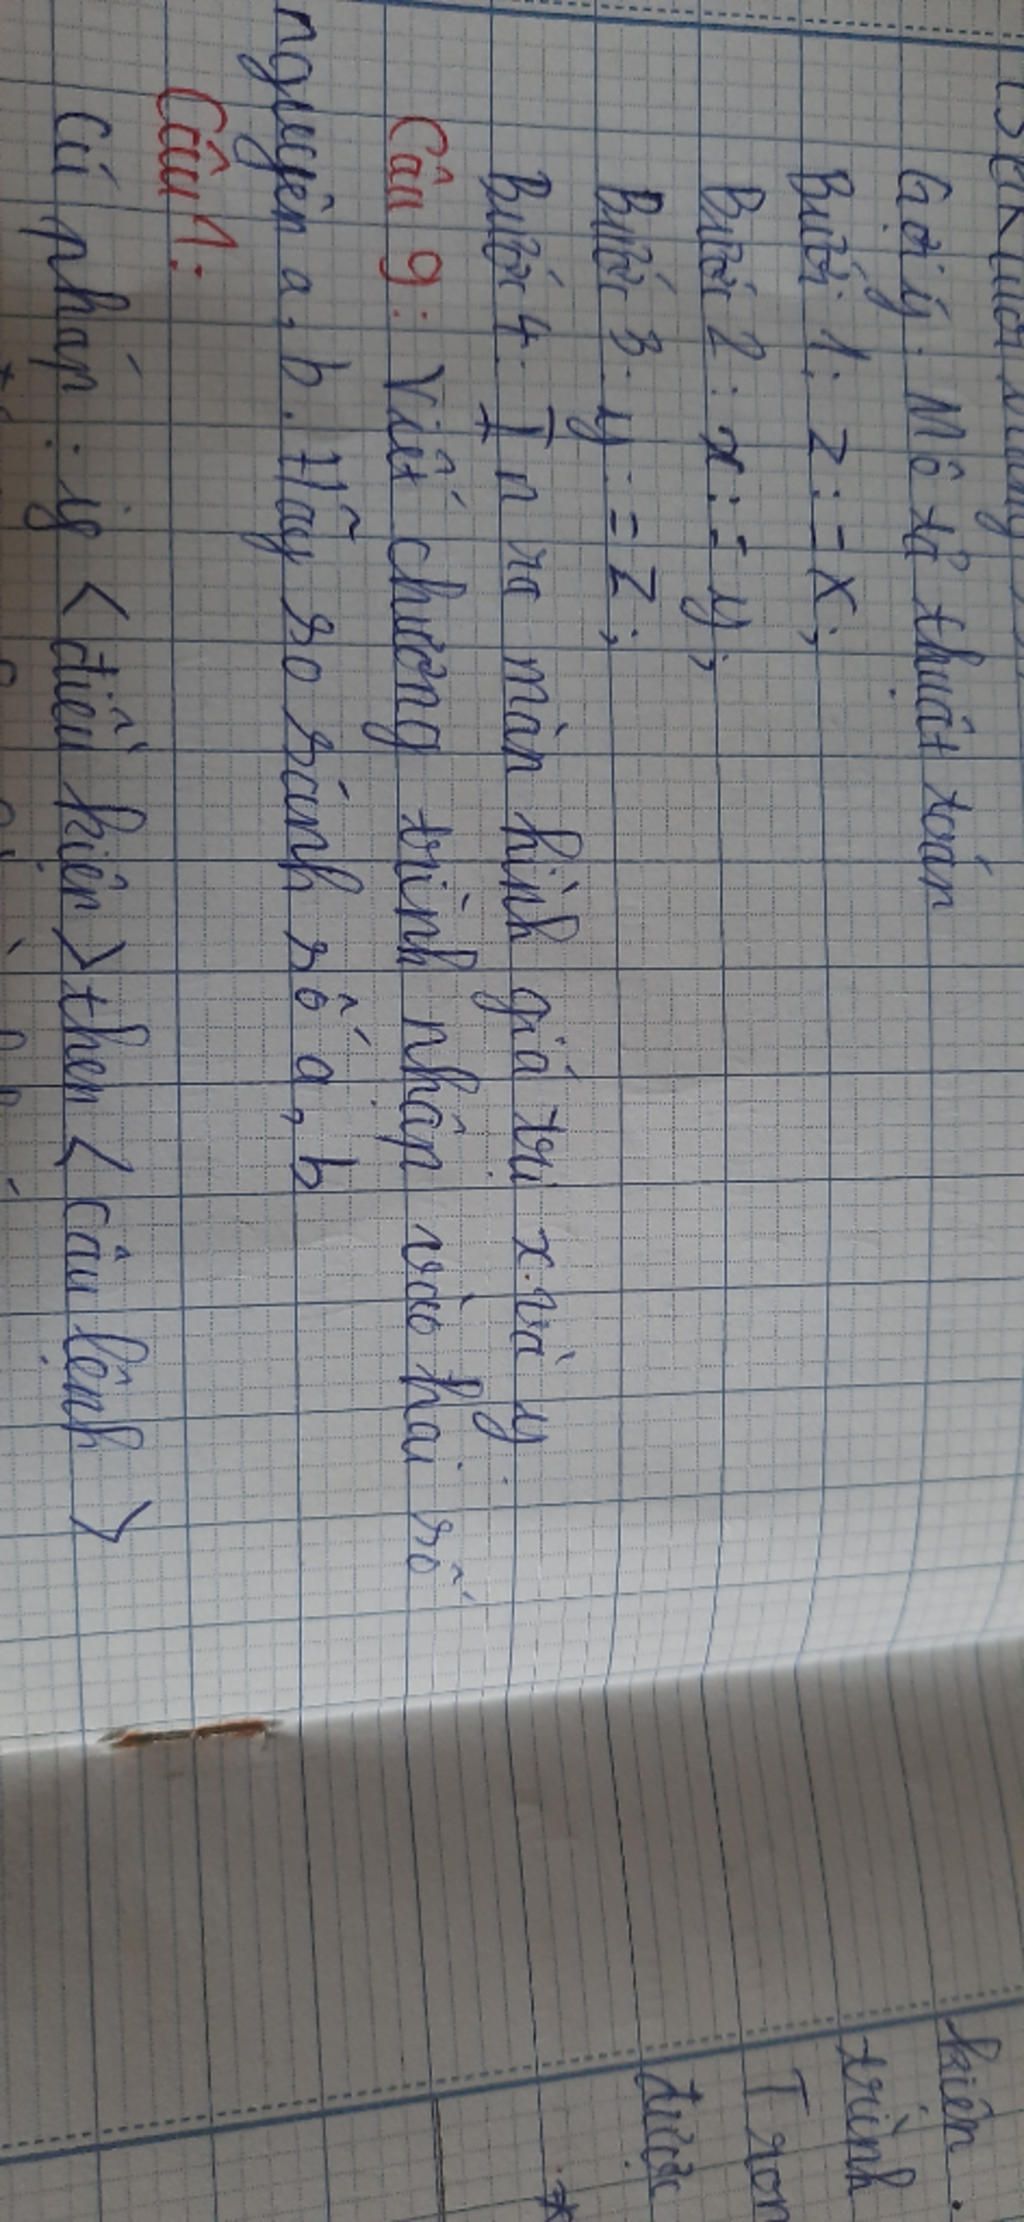 Gợi ý: Mô tả thuật toán
Bước 1: z:=x;
Bước 2: x:=y;
Bước 3: y:=z;
Bước 4: In ra màn hình giá trị x và y.
Câu 9: Viết chương trình nhập vào hai số
nguyên a, b. Hãy so sánh số a, b
Câu 1:
Cú pháp: if <điều kiện> then <câu lệnh>
kiện.
trình
Tron
được
*